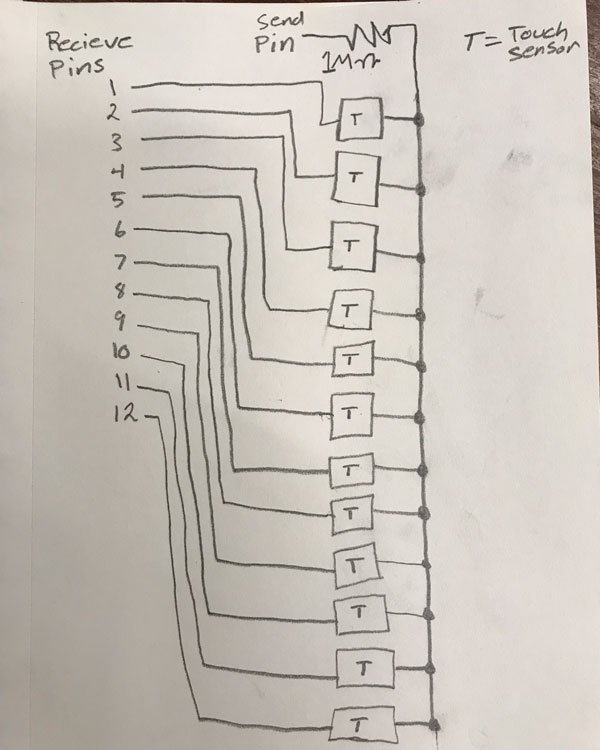 Recieve
Pins
Send
Pin
1MΩ
T = Touch
sensor
1
2
3
4
5
6
7
8
9
10
11
12
T
T
T
T
T
T
T
T
T
T
T
T